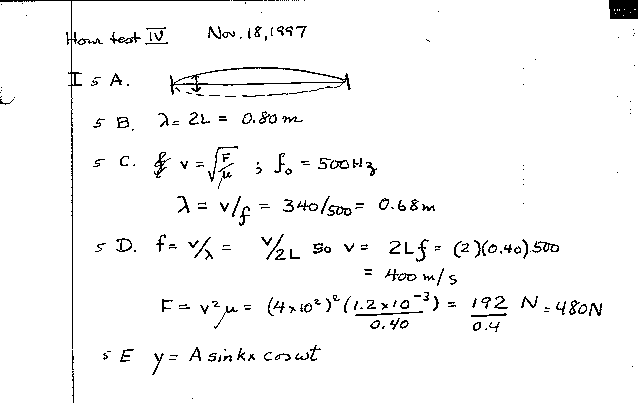 Hour test IV Nov. 18, 1997
I 5 A.
5 B. λ = 2L = 0.80 m
5 C. v = √(F/μ) ; f₀ = 500 Hz
λ = v/f = 340/500 = 0.68 m
5 D. f = v/λ = v/2L so v = 2Lf = (2)(0.40)500
= 400 m/s
F = v²μ = (4×10²)²(1.2×10⁻³)/0.40 = 192/0.4 N = 480N
5 E y = A sin kx cos ωt